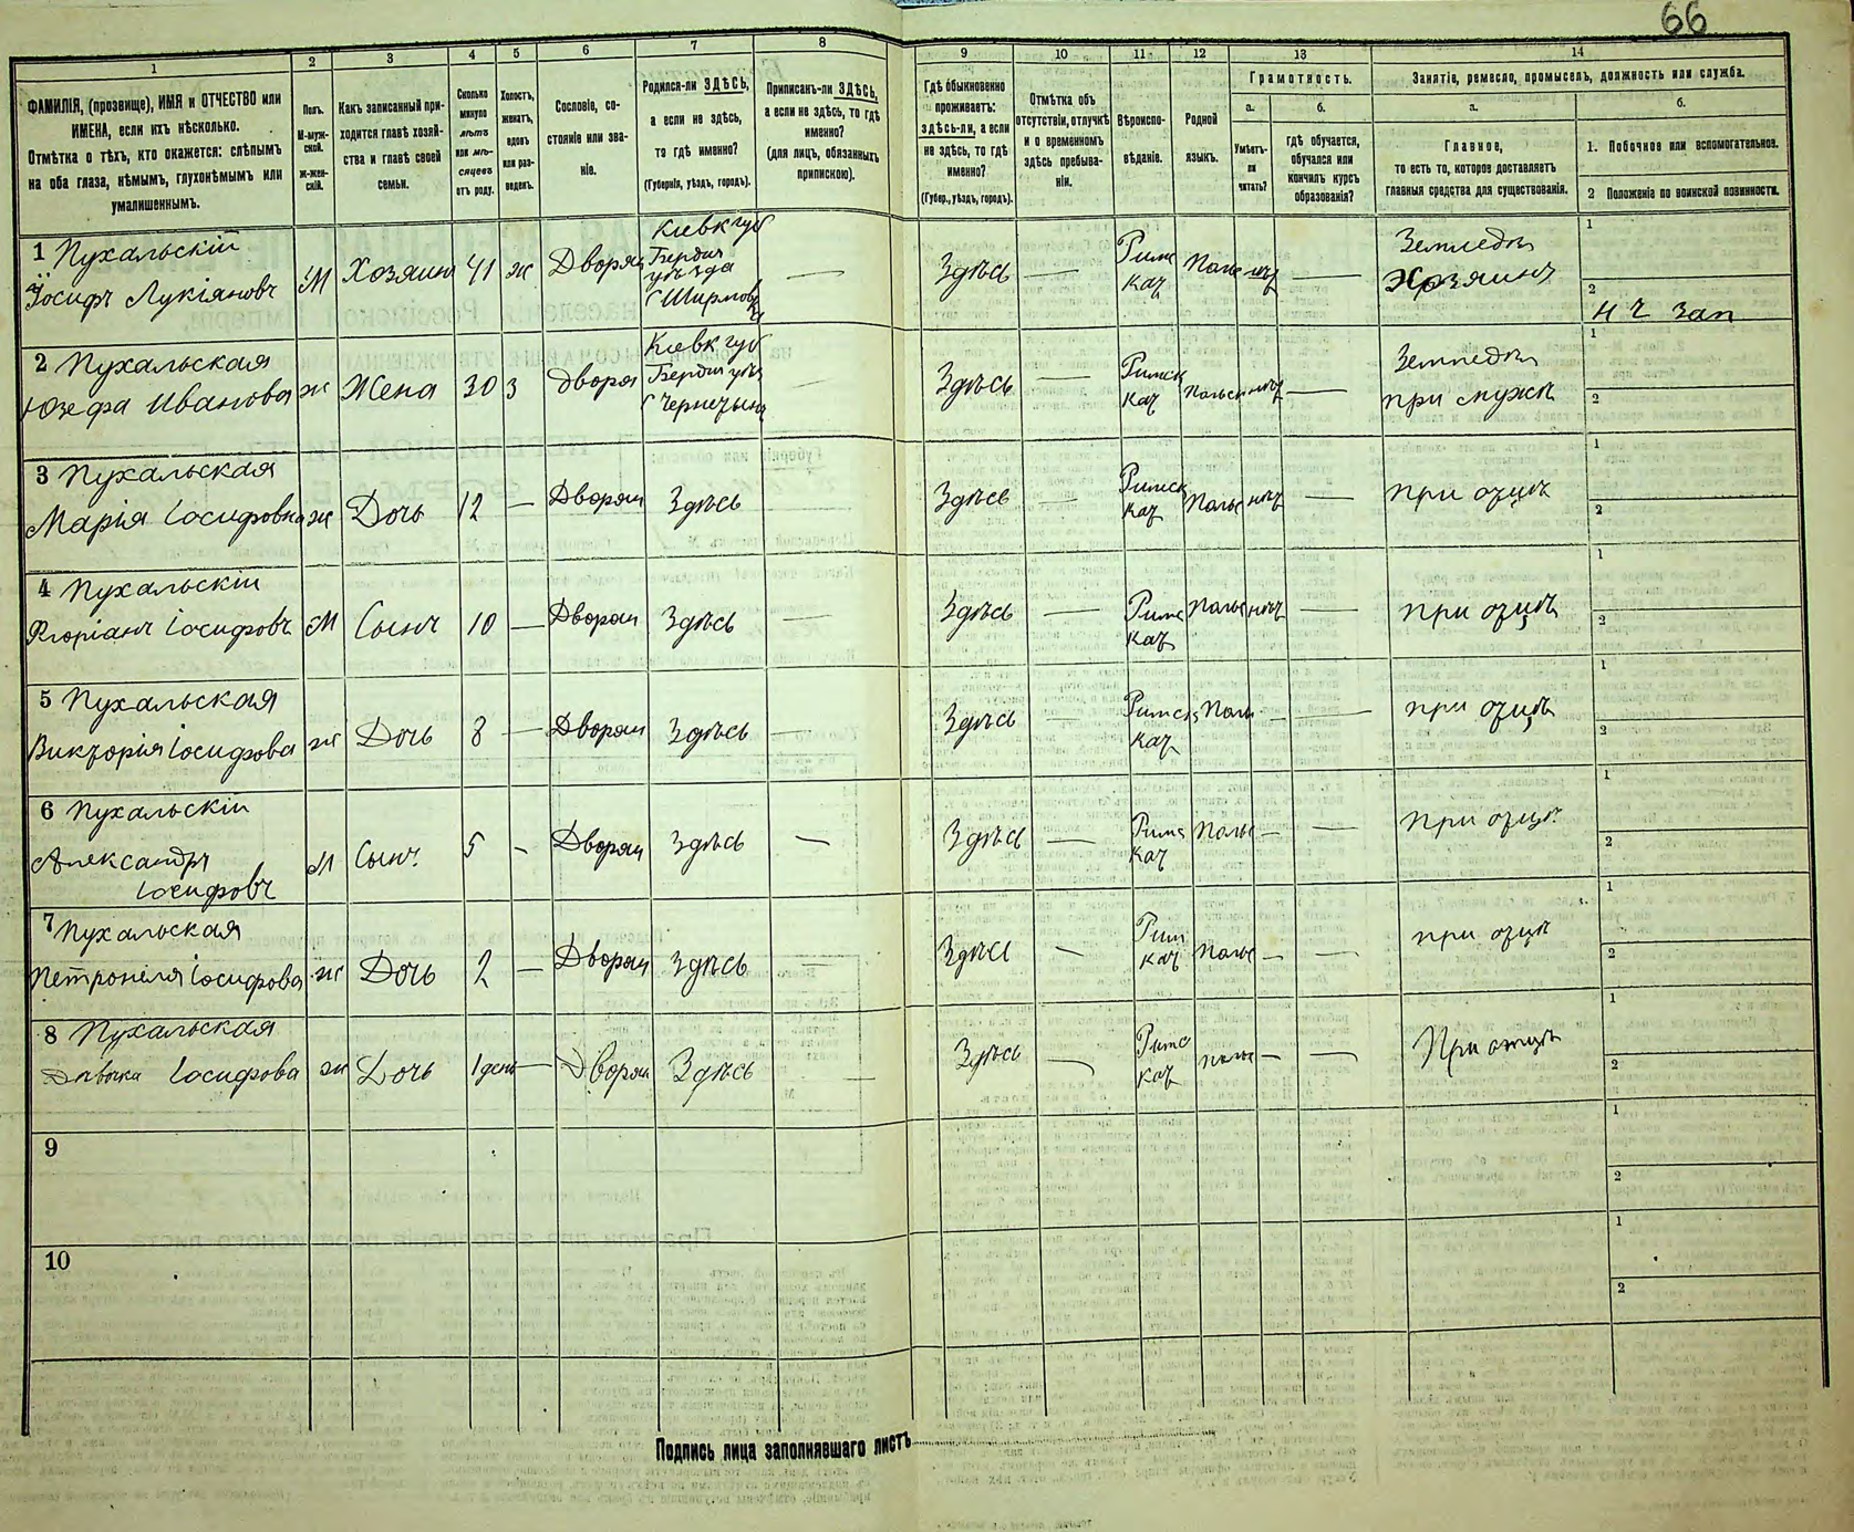 66
1 2 3 4 5 6 7 8 9 10 11 12 13 14
ФАМИЛІЯ, (прозвище), ИМЯ и ОТЧЕСТВО или
ИМЕНА, если ихъ нѣсколько.
Отмѣтка о тѣхъ, кто окажется: слѣпымъ
на оба глаза, нѣмымъ, глухонѣмымъ или
умалишеннымъ.
Полъ.
М-муж-
ской.
Ж-жен-
скій.
Какъ записанный при-
ходится главѣ хозяй-
ства и главѣ своей
семьи.
Сколько
минуло
лѣтъ
или мѣ-
сяцевъ
отъ роду.
Холостъ,
женатъ,
вдовъ
или раз-
веденъ.
Сословіе, со-
стояніе или зва-
ніе.
Родился-ли ЗДѢСЬ,
а если не здѣсь,
то гдѣ именно?
(Губернія, уѣздъ, городъ).
Приписанъ-ли ЗДѢСЬ,
а если не здѣсь, то гдѣ
именно?
(для лицъ, обязанныхъ
припискою).
Гдѣ обыкновенно
проживаетъ:
здѣсь-ли, а если
не здѣсь, то гдѣ
именно?
(Губер., уѣздъ, городъ).
Отмѣтка объ
отсутствіи, отлучкѣ
и о временномъ
здѣсь пребыва-
ніи.
Вѣроиспо-
вѣданіе.
Родной
языкъ.
Грамотность.
а.
Умѣетъ-
ли
читать?
б.
Гдѣ обучается,
обучался или
кончилъ курсъ
образованія?
Занятіе, ремесло, промыселъ, должность или служба.
а.
Главное,
то есть то, которое доставляетъ
главныя средства для существованія.
б.
1. Побочное или вспомогательное.
2 Положеніе по воинской повинности.
1 Пухальскій
Іосифъ Лукіяновъ М Хозяинъ 41 ж Дворян
Кіевк губ
Бердич
уѣзда
— Здѣсь —
Римс
кат
Поль нѣт —
Земледѣл
Хозяинъ
1
2
Н Ч Зап
2 Пухальская
Юзефа Иванова ж Жена 30 з Дворян
Кіевк губ
Бердич уѣз
— Здѣсь —
Римск
кат
Польск нѣт —
Земледѣл
при мужѣ
1
2
3 Пухальская
Марія Іосифовна ж Дочь 12 — Дворян Здѣсь — Здѣсь —
Римск
кат
Поль нѣт — при отцѣ
1
2
4 Пухальскій
Флоріанъ Іосифовъ М Сынъ 10 — Дворян Здѣсь — Здѣсь —
Римс
кат
Поль нѣт — при отцѣ
1
2
5 Пухальская
Викторія Іосифова ж Дочь 8 — Дворян Здѣсь — Здѣсь —
Римск
кат
Поль — — при отцѣ
1
2
6 Пухальскій
Александръ
Іосифовъ
М Сынъ 5 — Дворян Здѣсь — Здѣсь —
Римс
кат
Поль — — при отцѣ
1
2
7 Пухальская
Петронеля Іосифова ж Дочь 2 — Дворян Здѣсь — Здѣсь —
Рим
кат
Поль — — при отцѣ
1
2
8 Пухальская
Дѣвочка Іосифова ж Дочь 1 день — Дворян Здѣсь — Здѣсь —
Римс
кат
поль — — При отцѣ
1
2
9
1
2
10
1
2
Подпись лица заполнявшаго листъ